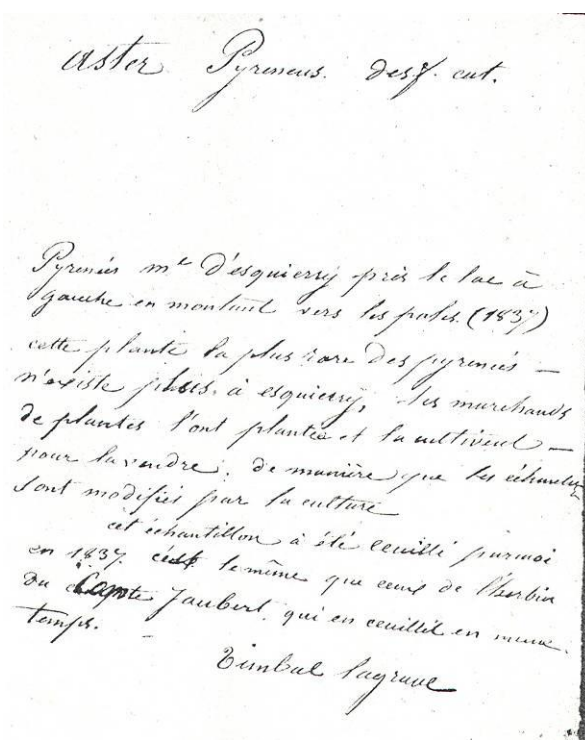 Aster Pyreneus. desf. cat.
Pyrenées mt D'esquierry près le lac à
gauche en montant vers les pales. (1837)
cette plante la plus rare Des pyrenées —
n'existe plus à esquierry, les marchands
de plantes l'ont plantée et la cultivent —
pour la vendre. de manière que les échantillons
sont modifiés par la culture
cet échantillon à été ceuilli par moi
en 1837. c'est le même que ceux de l'herbier
du Comte Jaubert, qui en ceuillit en même
temps. —
Timbal lagrave